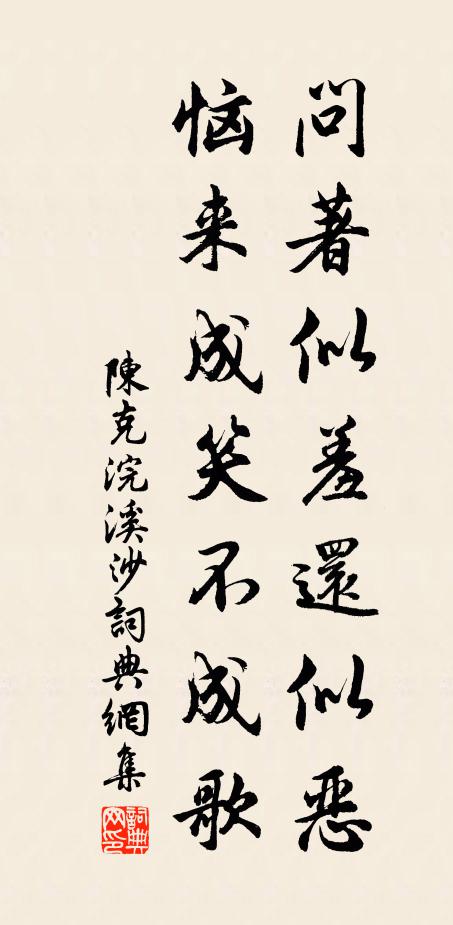 問著似羞還似恶
恼来成笑不成歌
陳克浣溪沙詞典網集
詞典網印